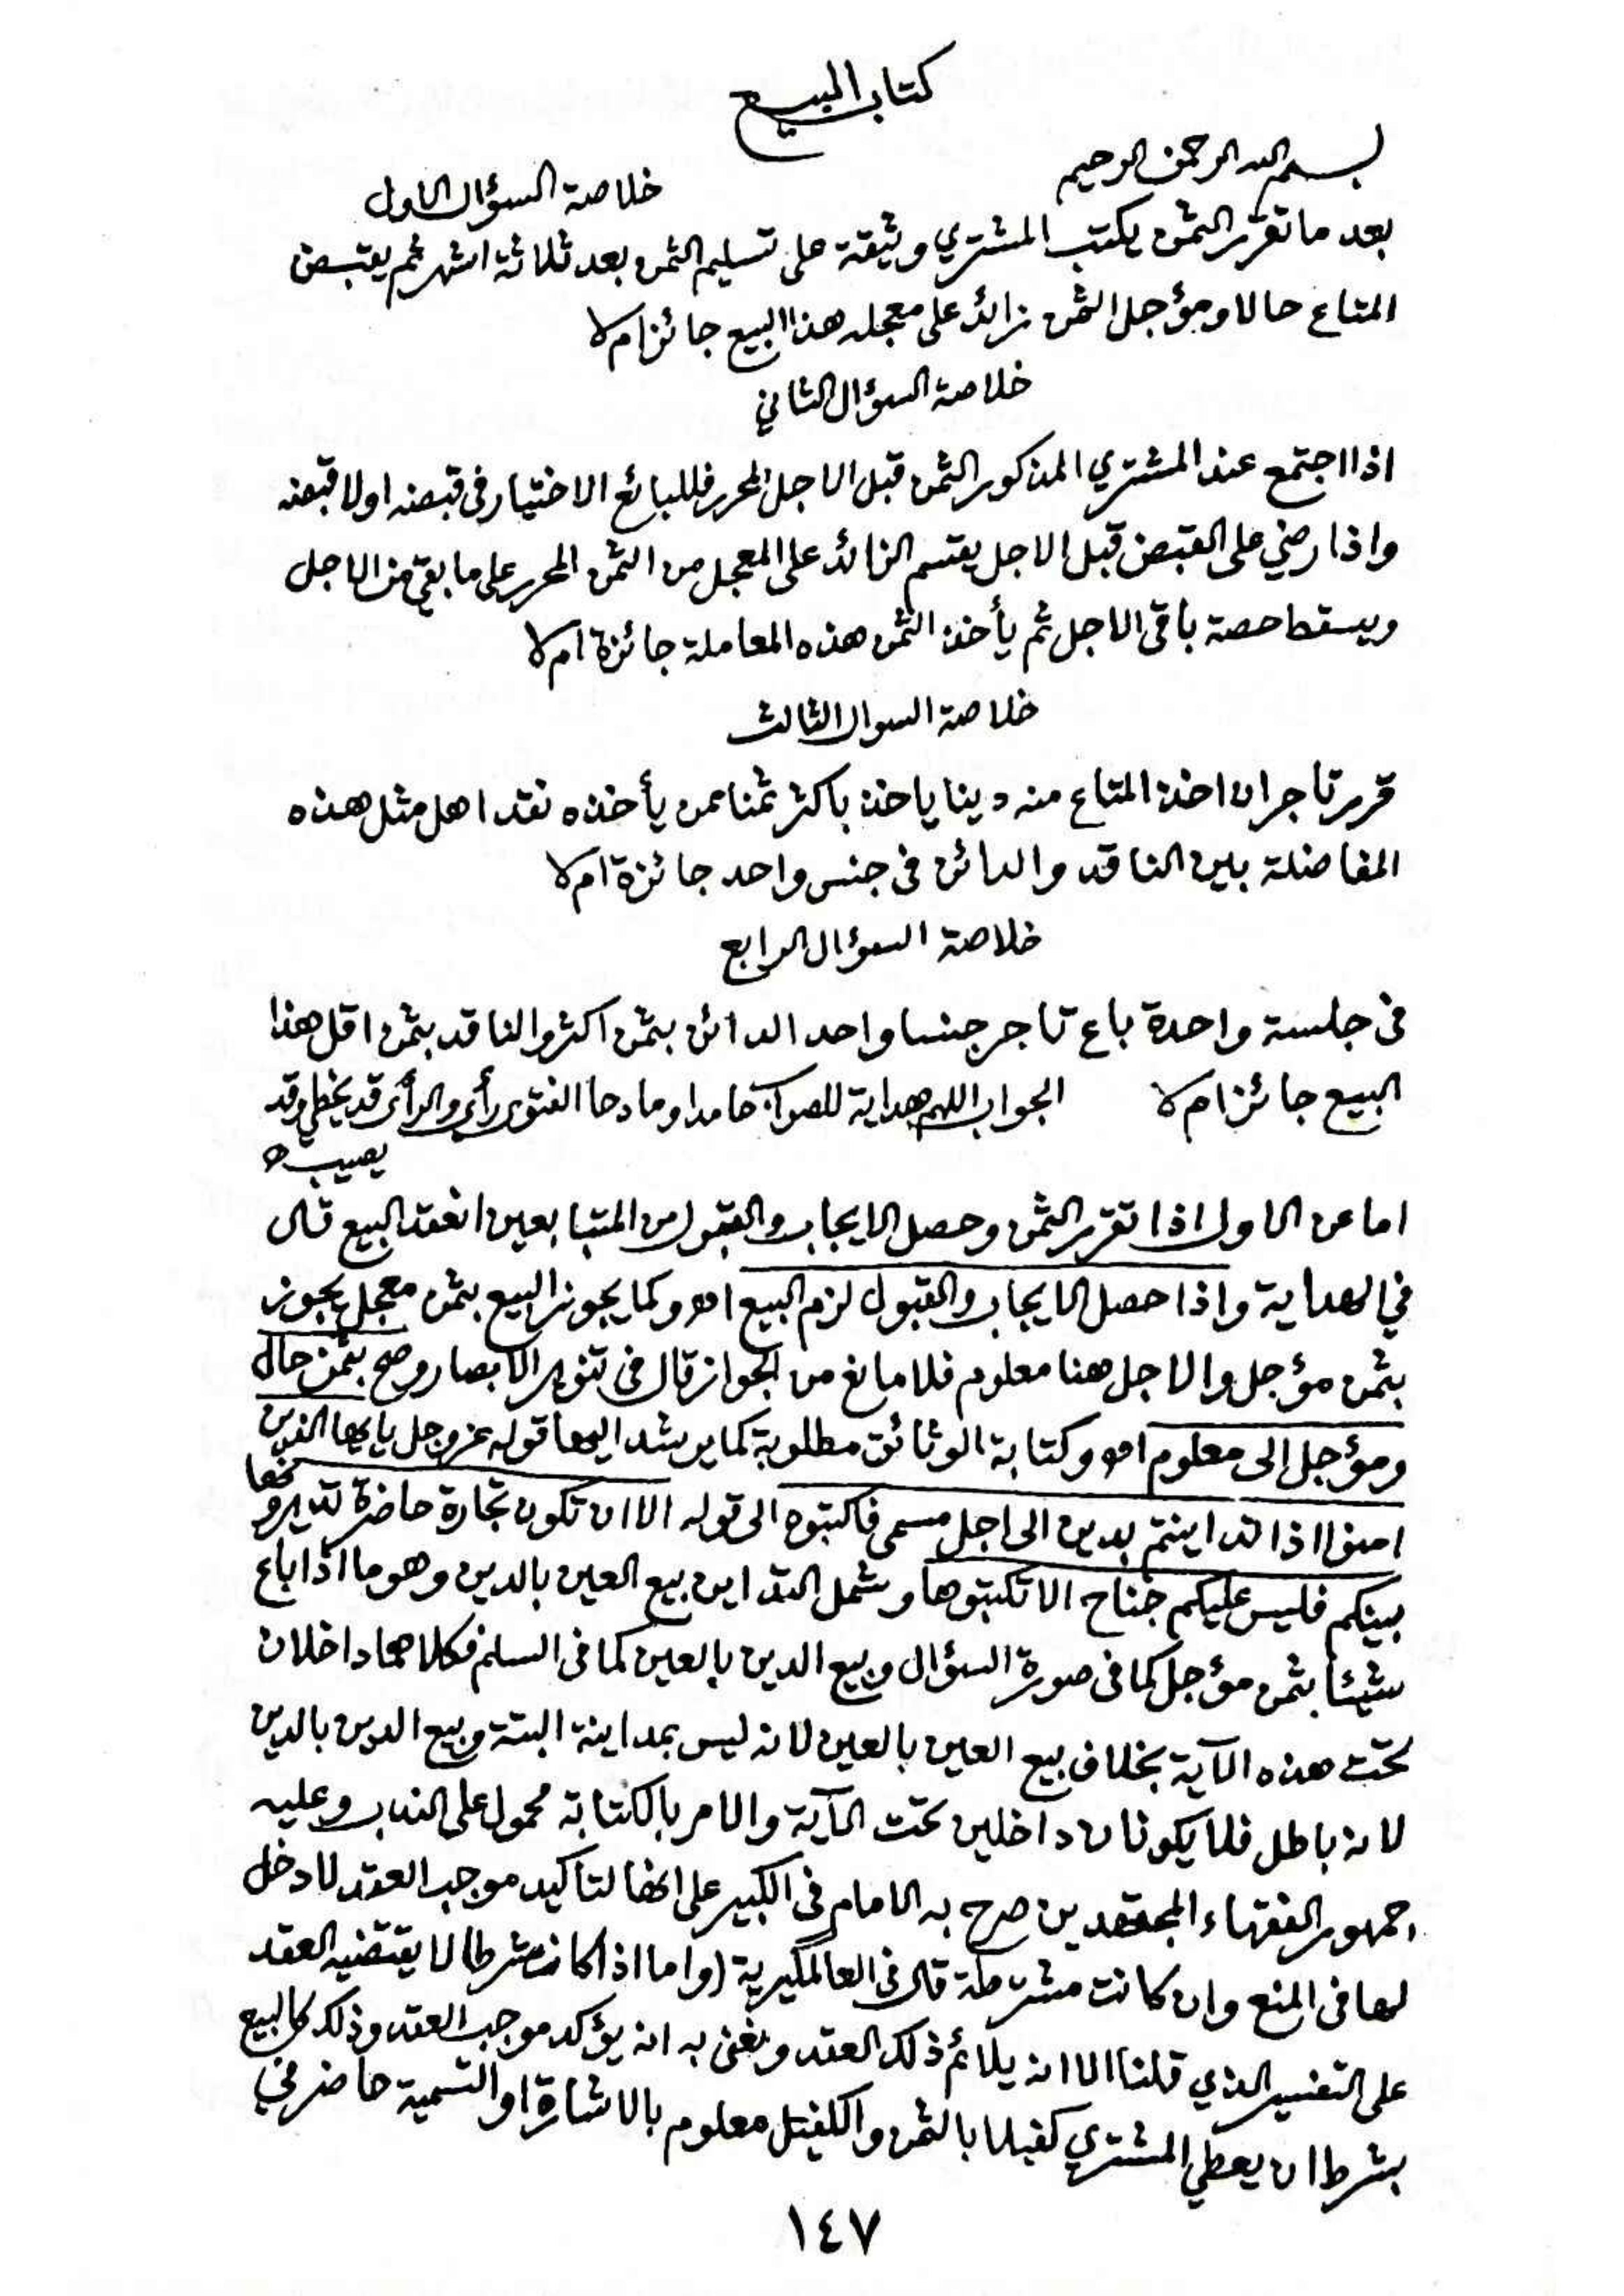 كتاب البيع
بسم الله الرحمن الرحيم
خلاصة السؤال الاول
بعد ما تقرر الثمن يكتب المشتري وثيقة على تسليم الثمن بعد ثلاثة اشهر ثم يقبض
المتاع حالا ومؤجل الثمن زائد على معجله هذا البيع جائز ام لا
خلاصة السؤال الثاني
اذا اجتمع عند المشتري المذكور الثمن قبل الاجل المحرر فللبائع الاختيار فى قبضه او لا قبضه
واذا رضي على القبض قبل الاجل يقسم الزائد على المعجل من الثمن المحرر على ما بقي من الاجل
ويسقط حصة باقى الاجل ثم يأخذ الثمن هذه المعاملة جائزة ام لا
خلاصة السوال الثالث
قرر تاجر ان اخذ المتاع منه دينا ياخذ باكثر ثمنا ممن يأخذه نقدا هل مثل هذه
المفاضلة بين الناقد والدائن فى جنس واحد جائزة ام لا
خلاصة السؤال الرابع
فى جلسة واحدة باع تاجر جنسا واحد الدائن بثمن اكثر والناقد بثمن اقل هذا
البيع جائز ام لا الجواب اللهم هداية للصواب حامدا ومادحا الفتوى رأي والرأى قد يخطي وقد
يصيب
اما عن الاول اذا تقرر الثمن وحصل الايجاب والقبول من المتبايعين انعقد البيع قال
في الهداية واذا حصل الايجاب والقبول لزم البيع اھ وكما يجوز البيع بثمن معجل يجوز
بثمن مؤجل والاجل هنا معلوم فلا مانع من الجواز قال فى تنوير الابصار وصح بثمن حال
ومؤجل الى معلوم اھ وكتابة الوثائق مطلوبة كما يرشد اليها قوله عز وجل يا يها الذين
امنوا اذا تداينتم بدين الى اجل مسمى فاكتبوه الى قوله الا ان تكون تجارة حاضرة تديرونها
بينكم فليس عليكم جناح الا تكتبوها وشمل التداين بيع العين بالدين وهو ما اذا باع
شيئا بثمن مؤجل كما فى صورة السؤال وبيع الدين بالعين كما فى السلم فكلاهما داخلان
تحت هذه الآية بخلاف بيع العين بالعين لانه ليس بمداينة البتة وبيع الدين بالدين
لانه باطل فلا يكونان داخلين تحت الآية والامر بالكتابة محمول على الندب وعليه
جمهور الفقهاء المجتهدين صرح به الامام فى الكبير على انها لتاكيد موجب العقد لا دخل
لها فى المنع وان كانت مشترطة قال فى العالمگيرية (واما اذا كان شرطا لا يقتضيه العقد
على التفسير الذي قلنا الا انه يلائم ذلك العقد ونعنى به انه يؤكد موجب العقد وذلك كالبيع
بشرط ان يعطي المشتري كفيلا بالثمن والكفيل معلوم بالاشارة او التسمية حاضر في
١٤٧